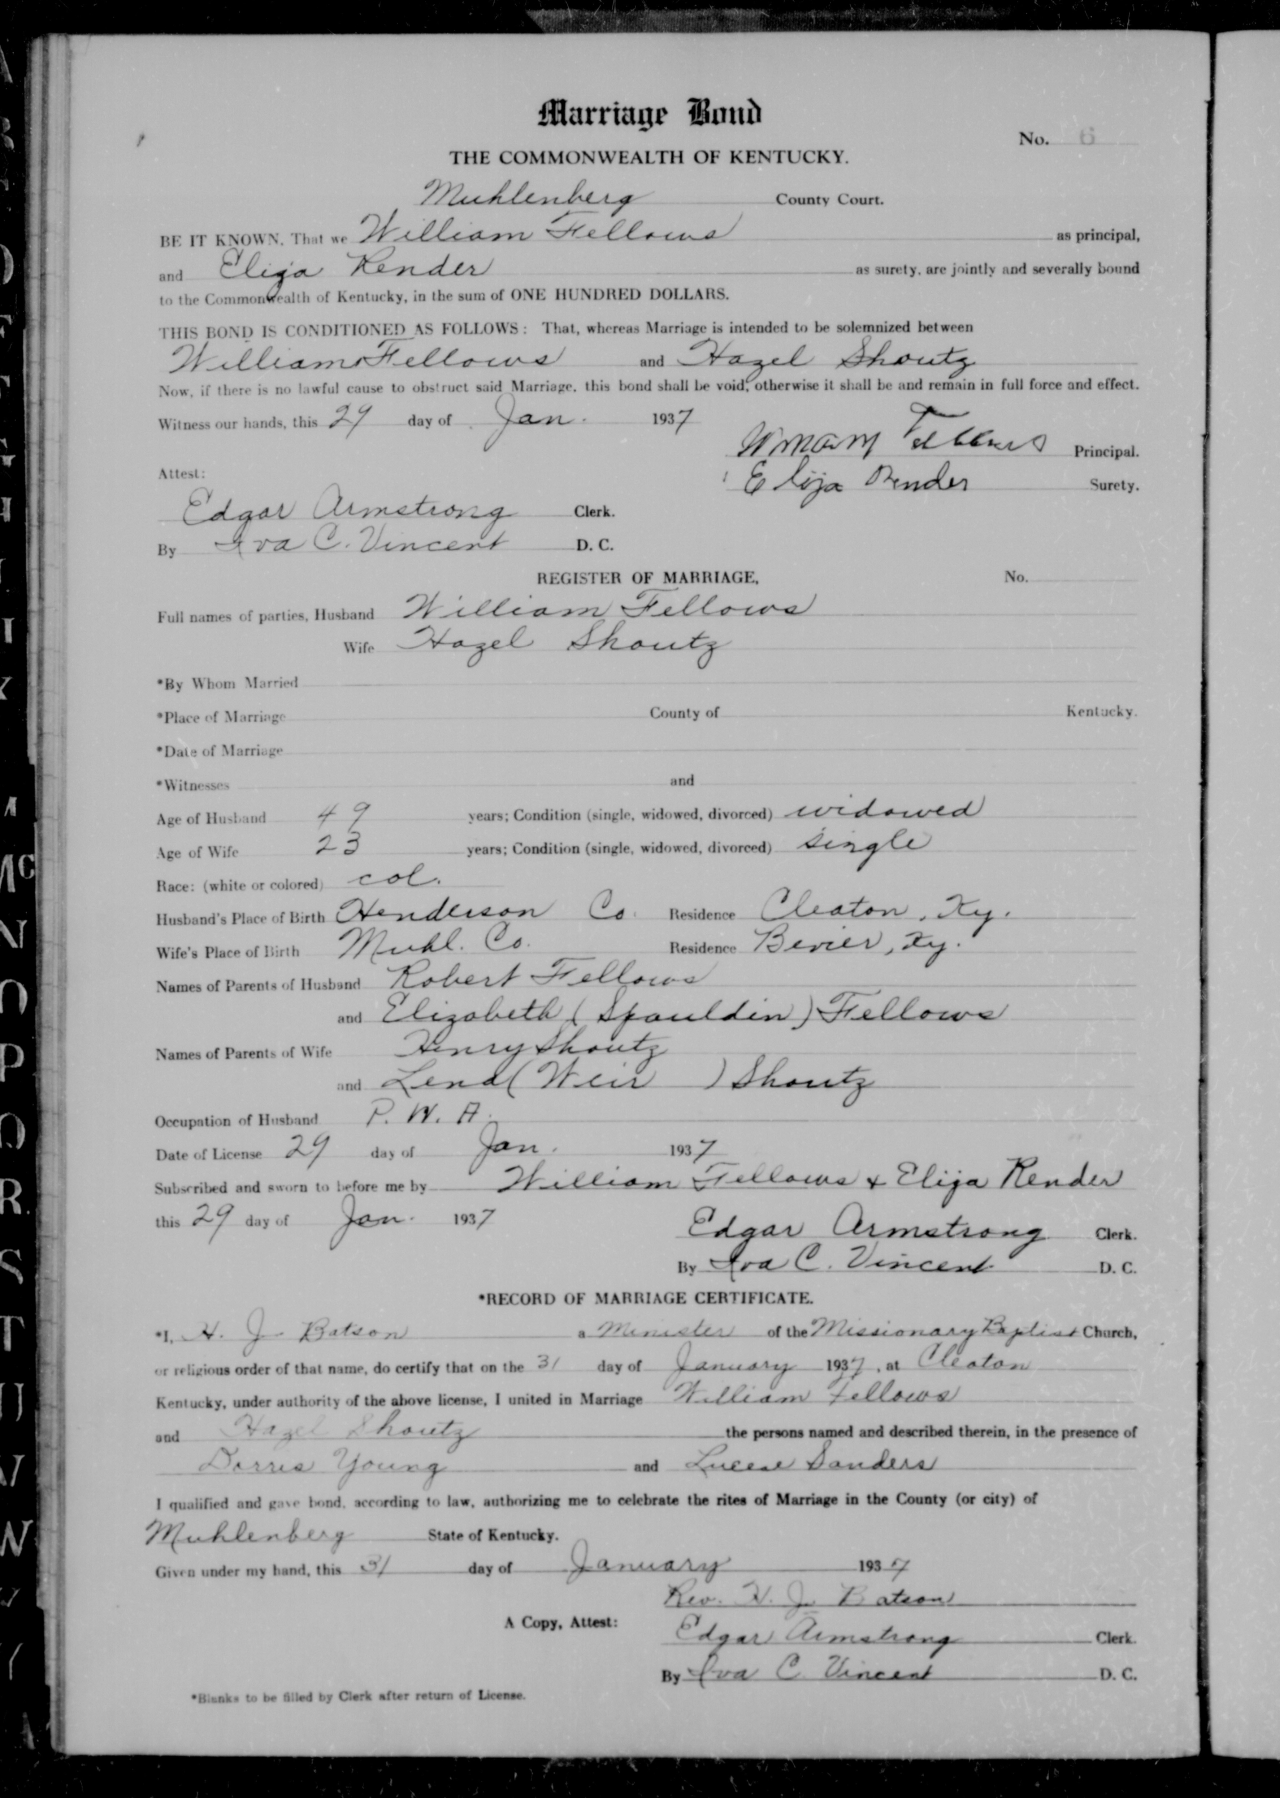 Marriage Bond
No. 6
THE COMMONWEALTH OF KENTUCKY.
Muhlenberg County Court.
BE IT KNOWN, That we William Fellows as principal,
and Elija Render as surety, are jointly and severally bound
to the Commonwealth of Kentucky, in the sum of ONE HUNDRED DOLLARS.
THIS BOND IS CONDITIONED AS FOLLOWS: That, whereas Marriage is intended to be solemnized between
William Fellows and Hazel Shoutz
Now, if there is no lawful cause to obstruct said Marriage, this bond shall be void; otherwise it shall be and remain in full force and effect.
Witness our hands, this 29 day of Jan. 1937
Fellows Principal.
Attest:
Elija Render Surety.
Edgar Armstrong Clerk.
By Iva C. Vincent D. C.
REGISTER OF MARRIAGE, No.
Full names of parties, Husband William Fellows
Wife Hazel Shoutz
*By Whom Married
*Place of Marriage County of Kentucky.
*Date of Marriage
*Witnesses and
Age of Husband 49 years; Condition (single, widowed, divorced) widowed
Age of Wife 23 years; Condition (single, widowed, divorced) single
Race: (white or colored) col.
Husband's Place of Birth Henderson Co. Residence Cleaton, Ky.
Wife's Place of Birth Muhl. Co. Residence Bevier, Ky.
Names of Parents of Husband Robert Fellows
and Elizabeth (Spauldin) Fellows
Names of Parents of Wife Henry Shoutz
and Lena (Weir ) Shoutz
Occupation of Husband P. W. A.
Date of License 29 day of Jan. 1937
Subscribed and sworn to before me by William Fellows + Elija Render
this 29 day of Jan. 1937
Edgar Armstrong Clerk.
By Iva C. Vincent D. C.
*RECORD OF MARRIAGE CERTIFICATE.
*I, H. J. Batson a Minister of the Missionary Baptist Church,
or religious order of that name, do certify that on the 31 day of January 1937, at Cleaton
Kentucky, under authority of the above license, I united in Marriage William Fellows
and Hazel Shoutz the persons named and described therein, in the presence of
Dorris Young and Sanders
I qualified and gave bond, according to law, authorizing me to celebrate the rites of Marriage in the County (or city) of
Muhlenberg State of Kentucky.
Given under my hand, this 31 day of January 1937
Rev. H. J. Batson
A Copy, Attest:
Edgar Armstrong Clerk.
By Iva C. Vincent D. C.
*Blanks to be filled by Clerk after return of License.